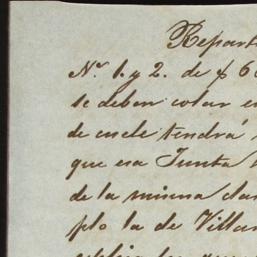 Repart
Nº 1. y 2. de $ 6
se deben cotar e
de ... tendrá
que esa Junta
de la misma cla
plo la de Villa